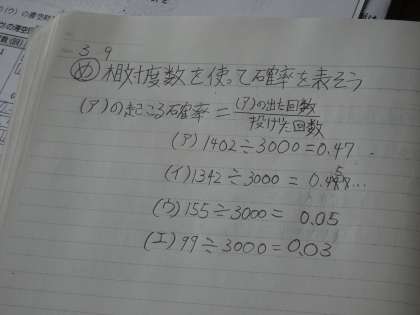 3 9
め 相対度数を使って確率を表そう
(ア)の起こる確率 = (ア)の出た回数
投げた回数
(ア) 1402÷3000=0.47
(イ) 1342÷3000=
(ウ) 155÷3000= 0.05
(エ) 99÷3000=0.03